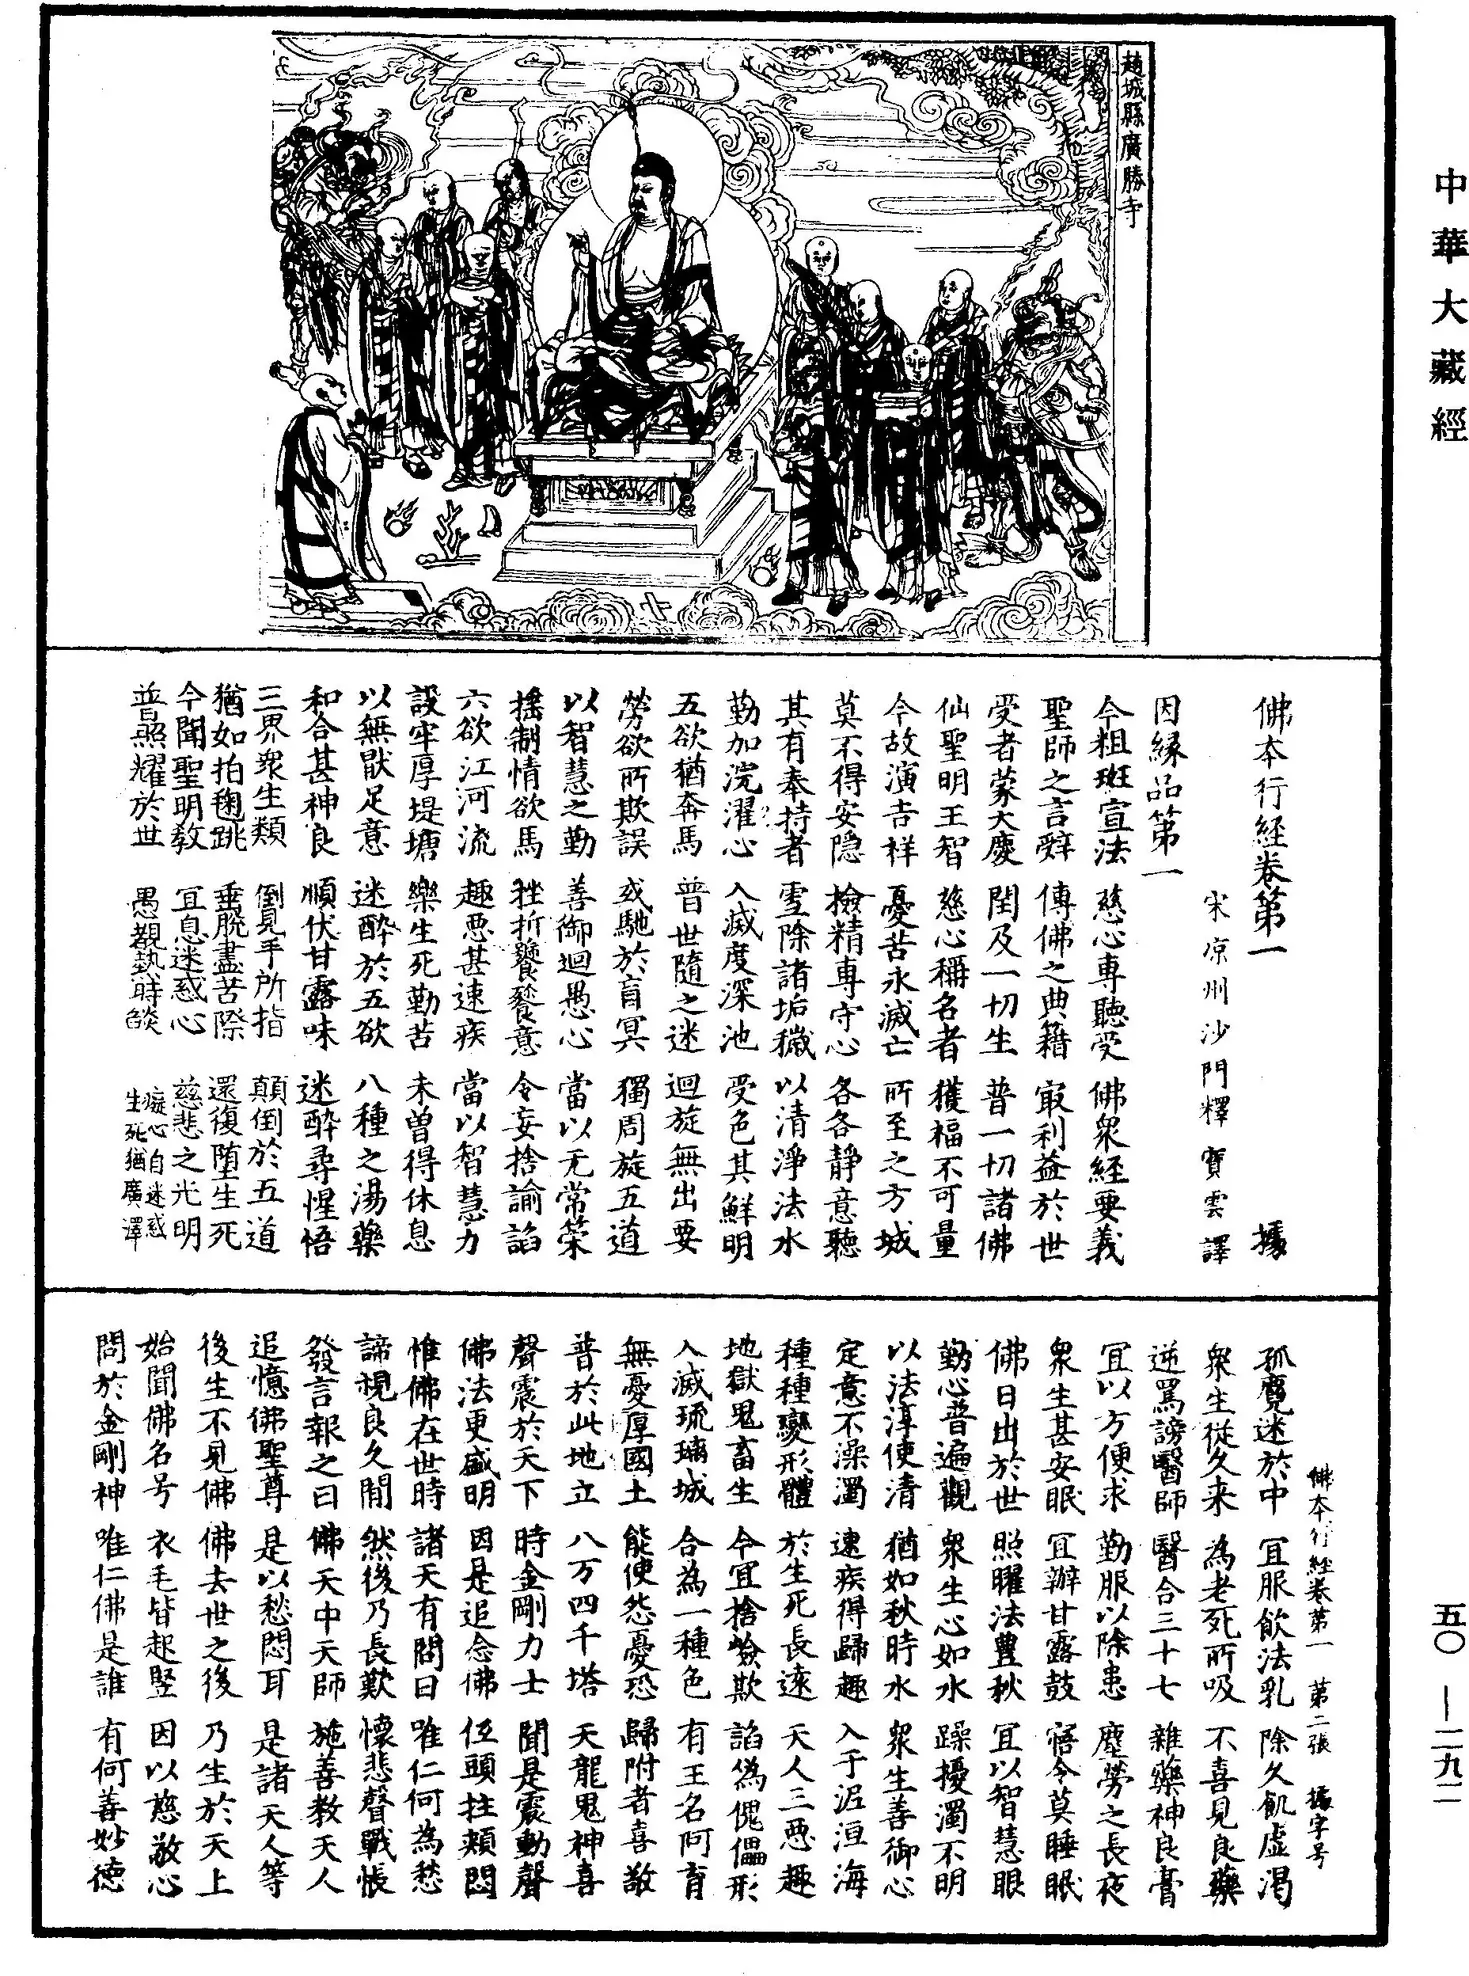 趙城縣廣勝寺
中華大藏經
佛本行經卷第一 據
宋凉州沙門釋寶雲譯
因緣品第一
今粗班宣法 慈心專聽受 佛衆經要義
聖師之言辭 傳佛之典籍 冣利益於世
受者蒙大慶 閏及一切生 普一切諸佛
仙聖明王智 慈心稱名者 獲福不可量
今故演吉祥 憂苦永滅亡 所至之方城
莫不得安隱 撿精專守心 各各靜意聽
其有奉持者 雪除諸垢穢 以清淨法水
勤加浣濯心 入滅度深池 受色其鮮明
五欲猶奔馬 普世隨之迷 迴旋無出要
勞欲所欺誤 或馳於盲冥 獨周旋五道
以智慧之勤 善御迴愚心 當以无常策
揺制情欲馬 挫折饕餮意 令妄捨諭諂
六欲江河流 趣惡甚速疾 當以智慧力
設牢厚堤塘 樂生死勤苦 未曽得休息
以無猒足意 迷醉於五欲 八種之湯藥
和合甚神良 順伏甘露味 迷醉尋惺悟
三界衆生類 倒見手所指 顛倒於五道
猶如拍毱跳 垂脫盡苦際 還復墮生死
今聞聖明教 宜息迷惑心 慈悲之光明
普照耀於世 愚觀熱時燄 癡心自迷惑
生死猶廣澤
佛本行經卷第一 第二張 據字号
孤麑迷於中 宜服飲法乳 除久飢虛渴
衆生從久来 為老死所吸 不喜見良藥
逆罵謗醫師 醫合三十七 雜藥神良膏
宜以方便求 勤服以除患 塵勞之長夜
衆生甚安眠 宜辦甘露鼓 寤令莫睡眠
佛日出於世 照曜法豊秋 宜以智慧眼
勤心普遍觀 衆生心如水 躁擾濁不明
以法淳使清 猶如秋時水 衆生善御心
定意不澡濁 速疾得歸趣 入于泥洹海
種種變形體 於生死長遠 天人三惡趣
地獄鬼畜生 今宜捨嶮欺 諂為傀儡形
入滅琉璃城 合為一種色 有王名阿育
無憂厚國土 能使怨憂恐 歸附者喜敬
普於此地立 八万四千塔 天龍鬼神喜
聲震於天下 時金剛力士 聞是震動聲
佛法更盛明 因是追念佛 伍頭拄頰悶
惟佛在世時 諸天有問曰 唯仁何為愁
諦視良久間 然後乃長歎 懷悲聲戰悵
發言報之曰 佛天中天師 施善教天人
追憶佛聖尊 是以愁悶耳 是諸天人等
後生不見佛 佛去世之後 乃生於天上
始聞佛名号 衣毛皆起竪 因以慈敬心
問於金剛神 唯仁佛是誰 有何善妙德
五〇—二九二